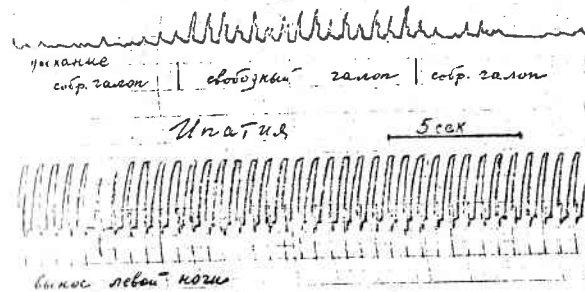 собр. галоп | свободный галоп | собр. галоп
Ипатия 5 сек
вынос левой ноги